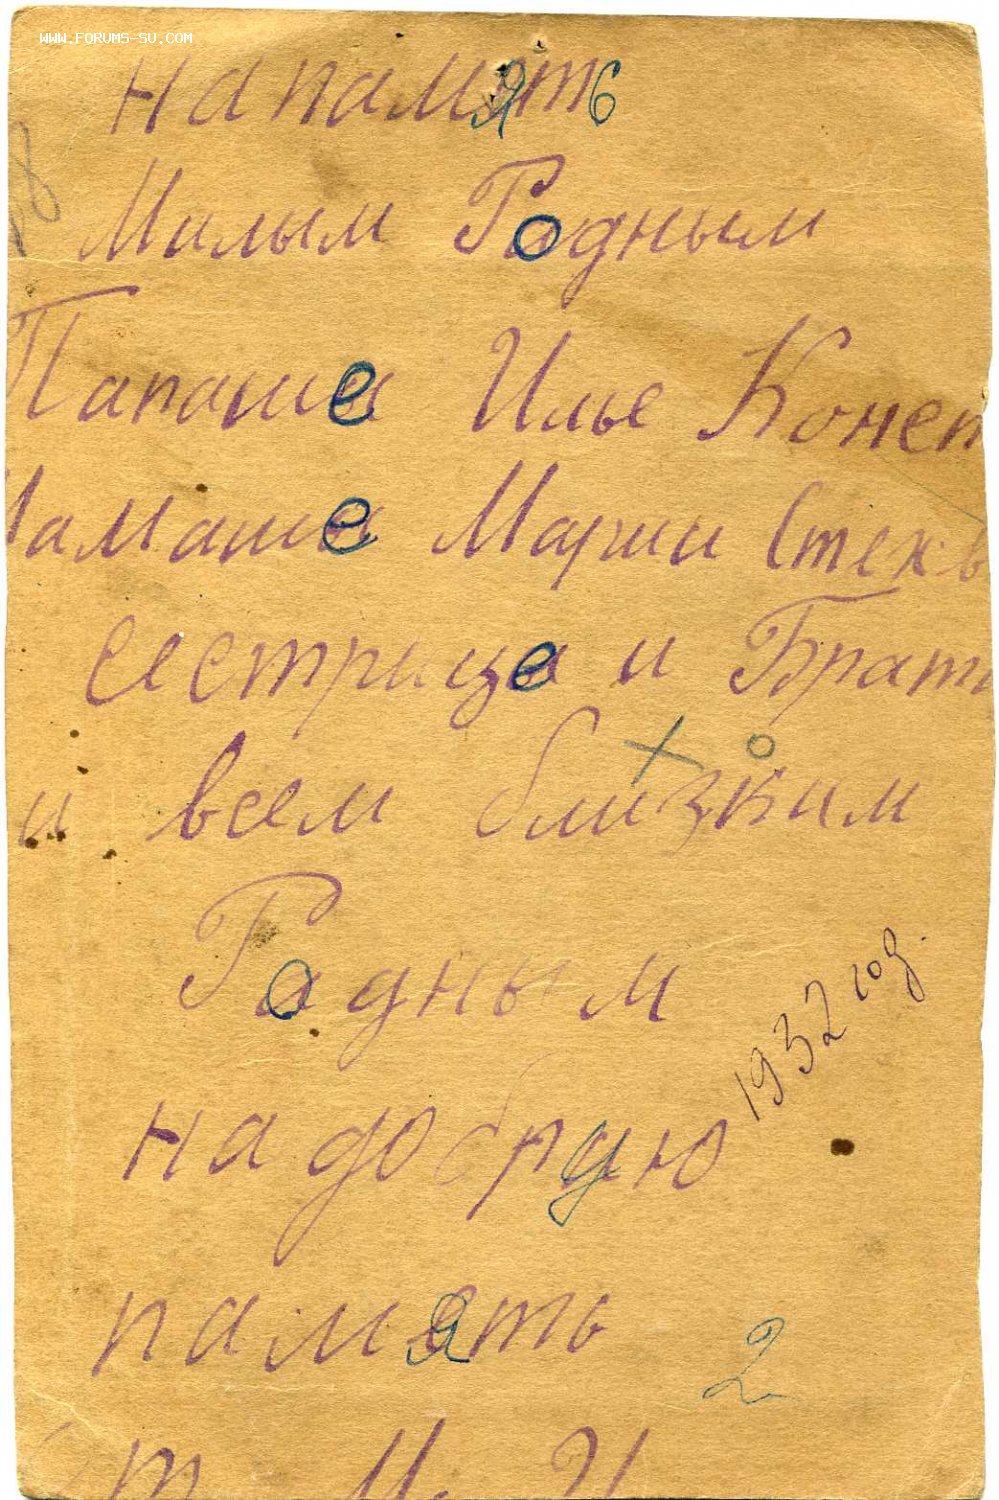 WWW.FORUMS-SU.COM
на память
Милым Родным
Папаше Илье Конст
Мамаше Марии
сестрице и Брат
и всем близким
Родным
на добрую
память
1932 год.
2
от М. И